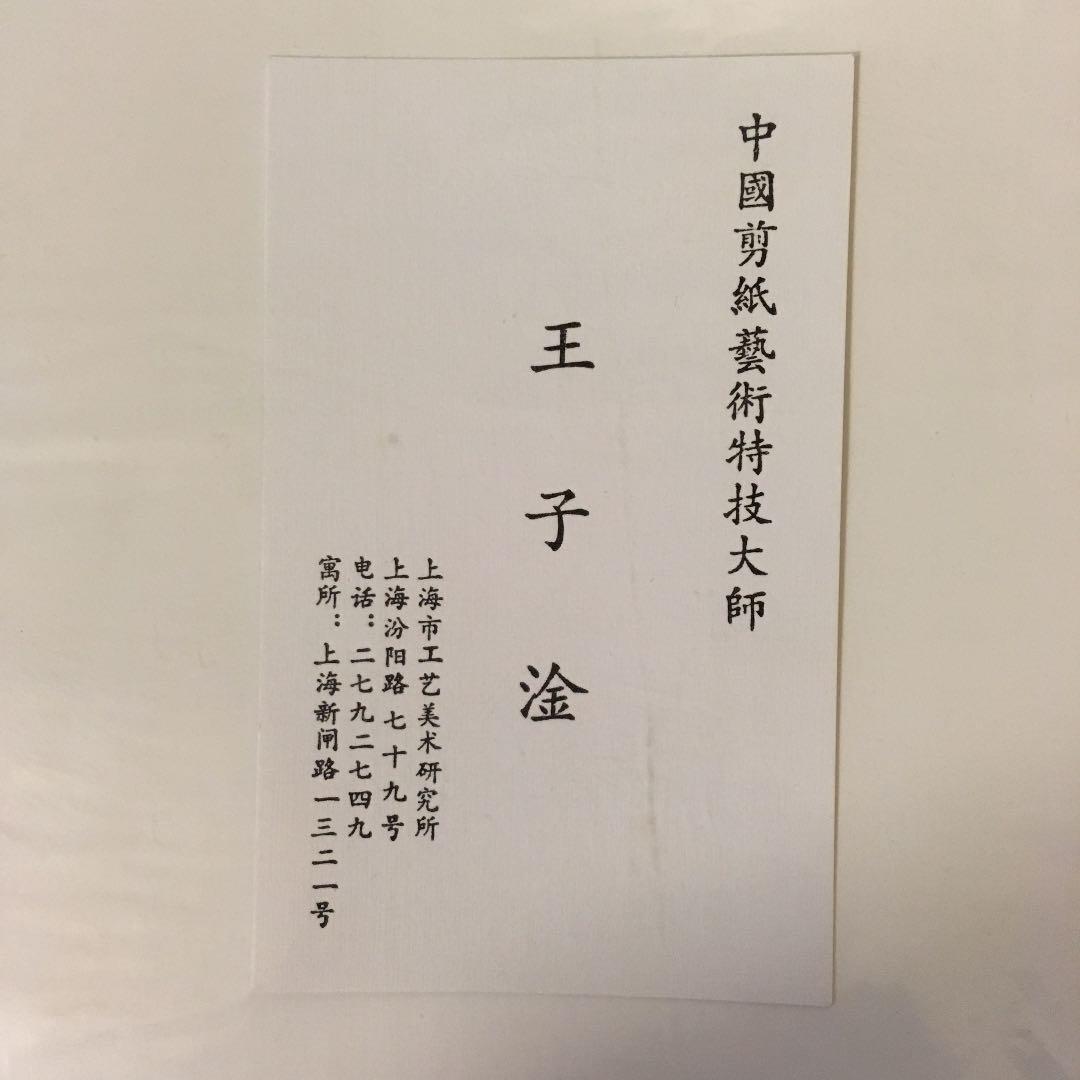 中國剪紙藝術特技大師
王子淦
上海市工艺美术研究所
上海汾阳路七十九号
电话：二七九二七四九
寓所：上海新闸路一三二一号